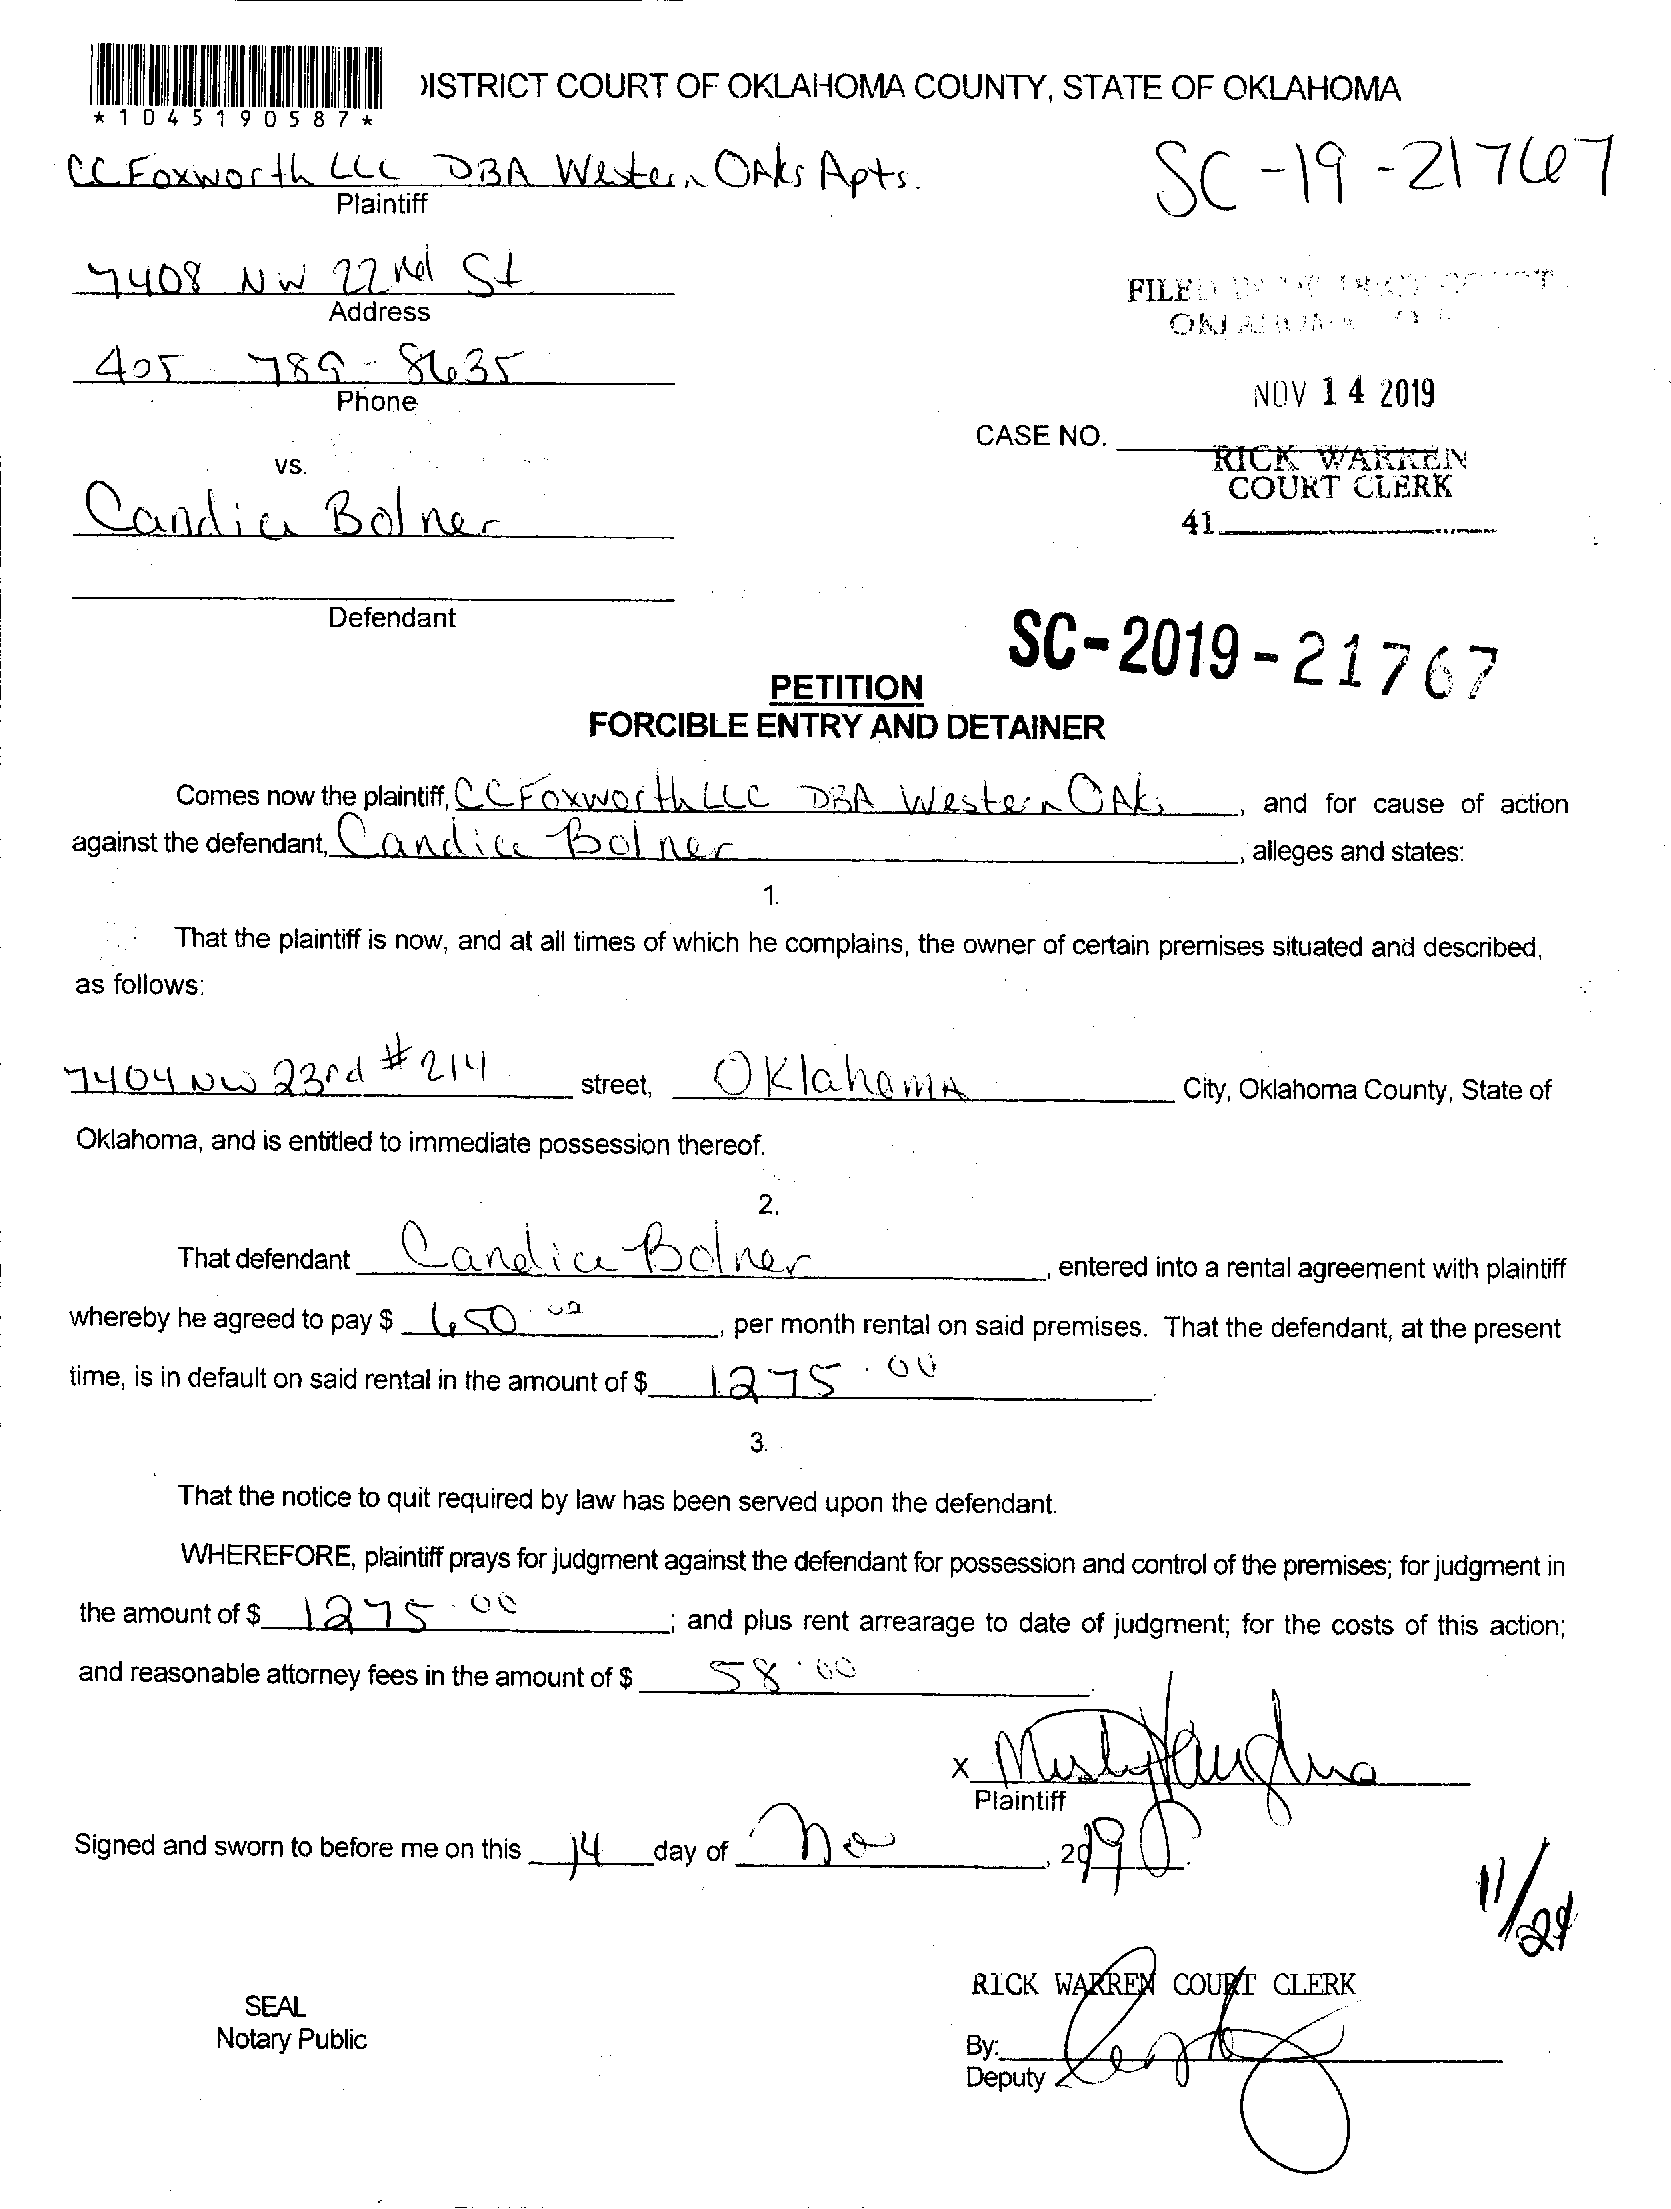 *1045190587*
DISTRICT COURT OF OKLAHOMA COUNTY, STATE OF OKLAHOMA
CC Foxworth LLC DBA Western Oaks Apts.
SC-19-21767
Plaintiff
7408 NW 22nd St
Address
FILED IN DISTRICT COURT
OKLAHOMA
405 789-8635
Phone
NOV 14 2019
CASE NO.
RICK WARREN
COURT CLERK
41
vs.
Candice Bolner
Defendant
SC-2019-21767
PETITION
FORCIBLE ENTRY AND DETAINER
Comes now the plaintiff, CC Foxworth LLC DBA Western Oaks, and for cause of action
against the defendant, Candice Bolner, alleges and states:
1.
That the plaintiff is now, and at all times of which he complains, the owner of certain premises situated and described,
as follows:
7404 NW 23rd #214 street, Oklahoma City, Oklahoma County, State of
Oklahoma, and is entitled to immediate possession thereof.
2.
That defendant Candice Bolner, entered into a rental agreement with plaintiff
whereby he agreed to pay $ 650.00, per month rental on said premises. That the defendant, at the present
time, is in default on said rental in the amount of $ 1275.00.
3.
That the notice to quit required by law has been served upon the defendant.
WHEREFORE, plaintiff prays for judgment against the defendant for possession and control of the premises; for judgment in
the amount of $ 1275.00; and plus rent arrearage to date of judgment; for the costs of this action;
and reasonable attorney fees in the amount of $ 58.00.
x Misty
Plaintiff
Signed and sworn to before me on this 14 day of No, 2019.
11/24
RICK WARREN COURT CLERK
SEAL
Notary Public
By:
Deputy